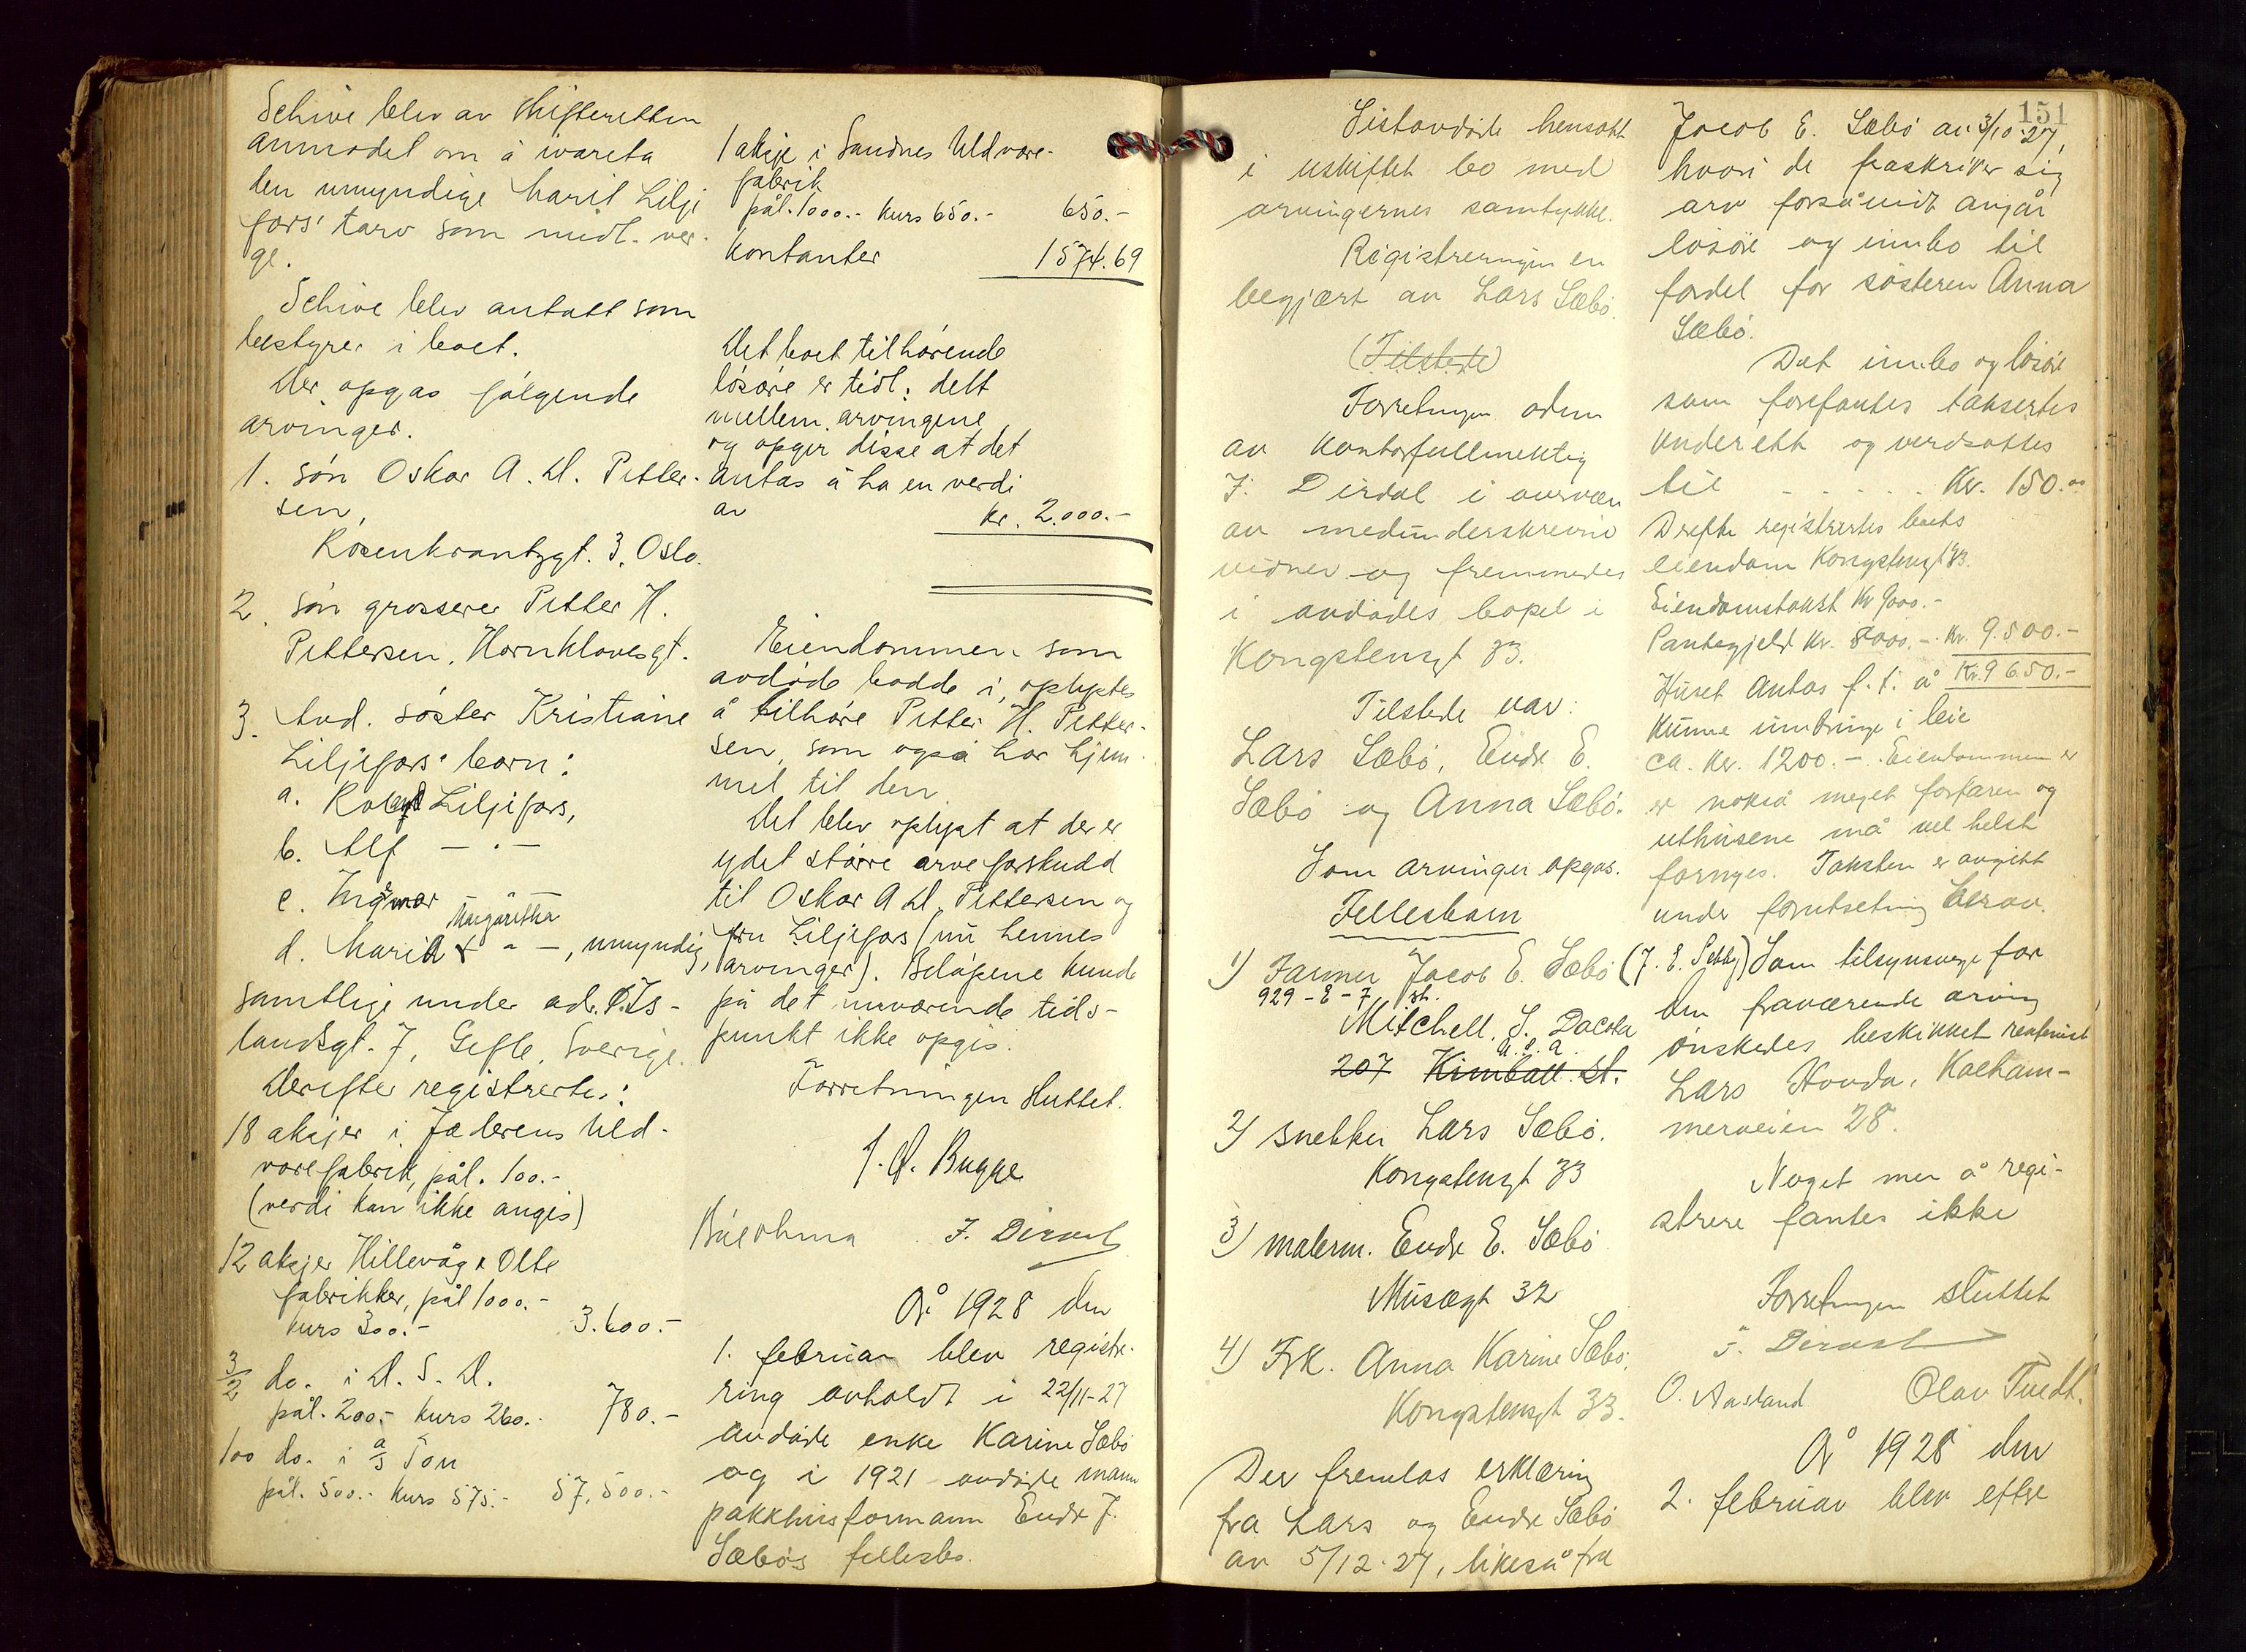 Schive blev av skifteretten
anmodet om å ivareta
den umyndige Marit Lilje
fors' tarv som midl. ver-
ge.
Schive blev antatt som
bestyrer i boet.
Der opgas følgende
arvinger.
1. søn Oskar A. D. Petter-
sen,
Rosenkrantzgt. 3, Oslo.
2. søn grosserer Petter H.
Pettersen, Hornklovesgt.
3. Avd. søster Kristiane
Liljefors' barn:
a. Rolf Liljefors,
b. Alf — " —
c. Ingmar — " —
Margaretha
d. Marit — " —, umyndig,
samtlige under adr. Is-
landsgt. 7, Gefle, Sverige.
Derefter registrertes:
18 aksjer i Jæderens Uld-
varefabrik, pål. 100.-
(verdi kan ikke angis)
12 aksjer Hillevåg Olie
fabrikker, pål 1000.-
kurs 300.- 3.600.-
3/2 do. i D. S. D.
pål. 200.- kurs 260.- 780.-
100 do. i a/s Tou
pål. 500.- kurs 575.- 57,500.-
1 aksje i Sandnes Uldvare-
fabrik
pål. 1000.- kurs 650.- 650.-
Kontanter 1574.69
Det boet tilhørende
løsøre er tidl. delt
mellem arvingene
og opgir disse at det
antas å ha en verdi
av kr. 2.000.-
Eiendommen som
avdøde bodde i, oplystes
å tilhøre Petter H. Petter-
sen, som også har hjem-
mel til den
Det blev oplyst at der er
ydet større arveforskudd
til Oskar A. D. Pettersen og
fru Liljefors (nu hennes
arvinger). Beløpene kunde
på det nuværende tids-
punkt ikke opgis.
Forretningen sluttet.
J. Q. Bugge
J. Dirdal
År 1928 den
1. februar blev registre-
ring avholdt i 22/11-27
avdøde enke Karine Sæbø
og i 1921 avdøde mann
pakkhusformann Endre J.
Sæbøs fellesbo.
151
Sistavdøde hensatt
i uskiftet bo med
arvingernes samtykke.
Registreringen er
begjært av Lars Sæbø.
(Tilstede)
Forretningen adm.
av kontorfullmektig
J. Dirdal i overvær
av medunderskrevne
vidner og fremmedes
i avdødes bopel i
Kongstensgt 33.
Tilstede var:
Lars Sæbø, Endre E.
Sæbø og Anna Sæbø.
Som arvinger opgas.
Fellesbarn
1) Farmer Jacob E. Sæbø (J. E. Sebby)
929 - E - 7 st.
Mitchell, S. Dacota
U. S. A.
207 Kimball St.
2) snekker Lars Sæbø.
Kongstensgt 33
3) malerm. Endre E. Sæbø
Musægt 32
4) Frk. Anna Karine Sæbø.
Kongstensgt 33.
Der fremlas erklæring
fra Lars og Endre Sæbø
av 5/12.27, likeså fra
Jacob E. Sæbø av 3/10.27,
hvori de fraskriver sig
arv forsåvidt angår
løsøre og innbo til
fordel for søsteren Anna
Sæbø.
Det innbo og løsøre
som forefantes taksertes
under ett og verdsattes
til . . . . . Kr. 150.00
Derefter registrertes boets
eiendom Kongstensgt 33.
Eiendomstakst Kr 9000.-
Pantegjeld Kr. 8000.- Kr. 9.500.-
Kr. 9650.-
Huset antas f. t. å
kunne innbringe i leie
ca. Kr. 1200.- Eiendommen er
er nokså meget forfaren og
uthusene må vel helst
fornyes. Taksten er avgitt
under forutsetning herav.
Som tilsynsverge for
den fraværende arving
ønskedes beskikket rentenist
Lars Hovda, Kolham-
merveien 28.
Noget mer å regi-
strere fantes ikke
Forretningen sluttet
J. Dirdal
O. Aasland Olav Tuedt.
År 1928 den
2. februar blev efter